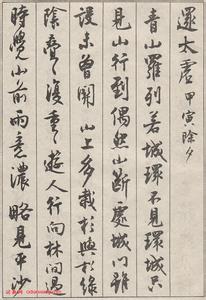 太虛 甲寅除夕
青山羅列若城環 不見環城只
見山 行到偶然山斷處 城門雖
設未曾關 山上多栽杉與松 綠
陰疊疊復重重 遊人行向林間過
時覺山前雨意濃 略見平沙